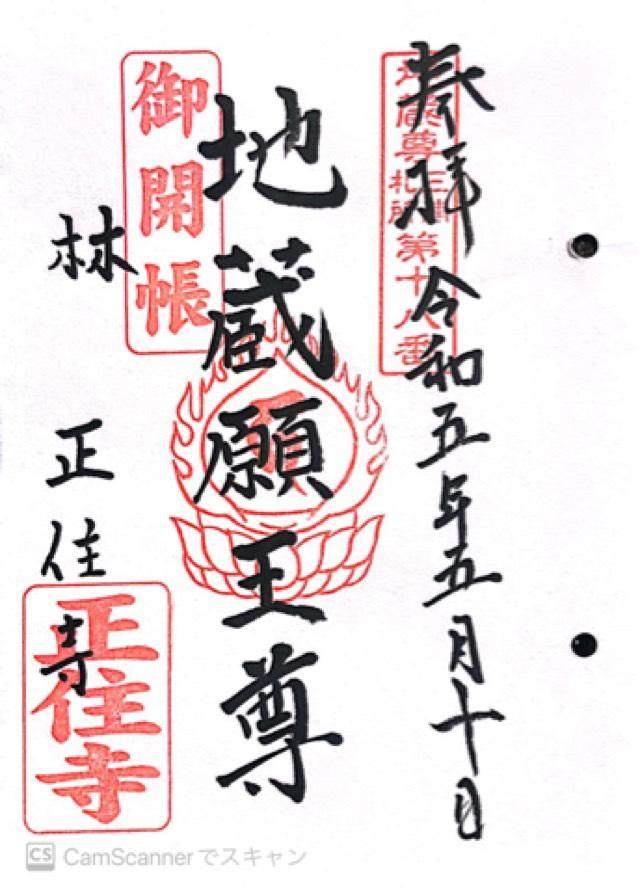 奉拝 令和五年五月十日
地蔵尊 三十三 札所 第十八番
地蔵願王尊
御開帳
林 正住寺
正住寺
CS CamScannerでスキャン